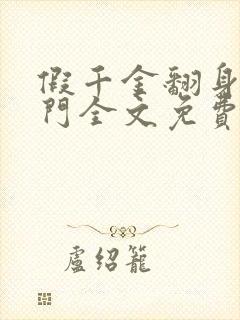 假千金翻身
門全文免費
盧紹籠